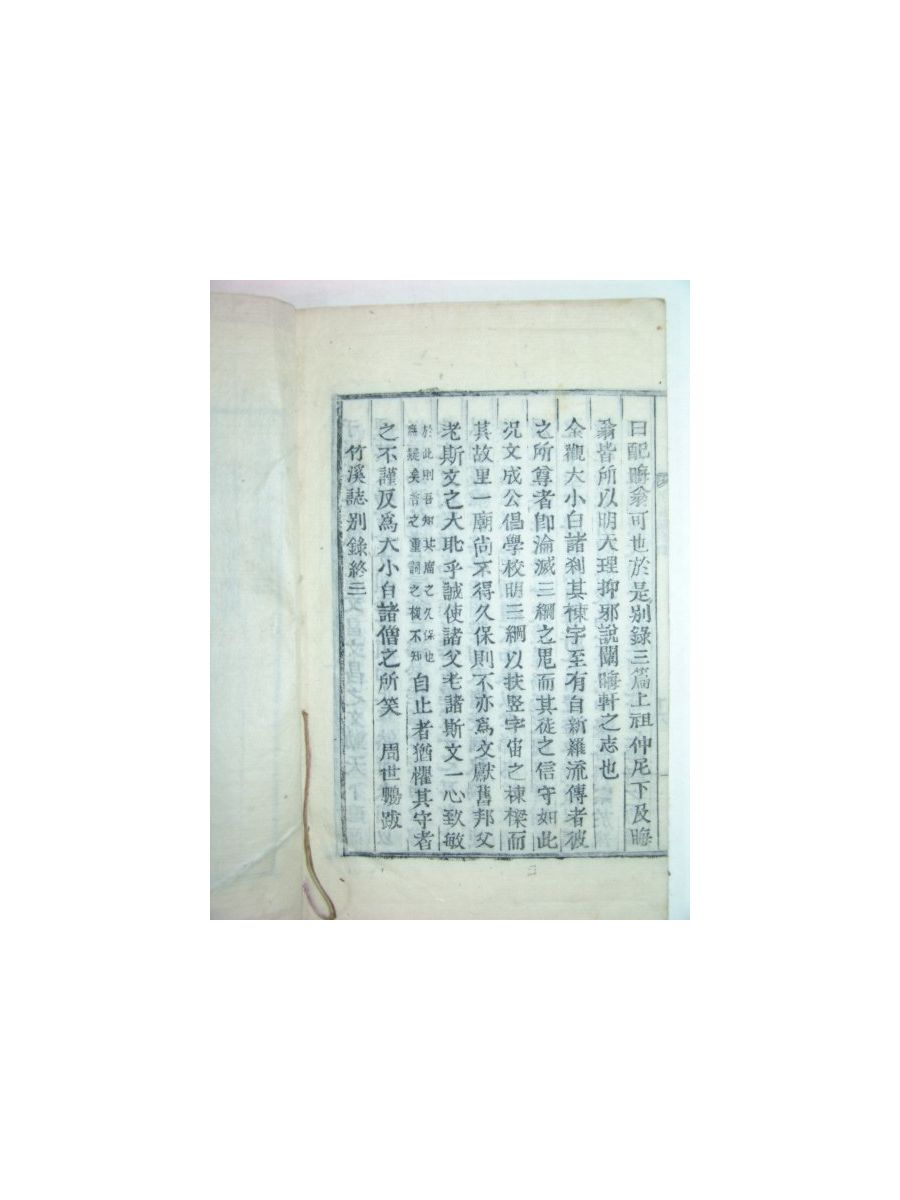 曰配晦翁可也於是別錄三篇上祖仲尼下及晦
翁皆所以明天理抑邪說闡晦軒之志也
余觀大小白諸刹其棟宇至有自新羅流傳者彼
之所尊者即淪滅三綱之鬼而其徒之信守如此
况文成公倡學校明三綱以扶竪宇宙之棟樑而
其故里一廟尙不得久保則不亦爲文獻舊邦父
老斯文之大恥乎誠使諸父老諸斯文一心致敏
於此則吾知其廟之久保也
無疑矣吾之重詞之複不知
自止者猶懼其守者
之不謹反爲大小白諸僧之所笑 周世鵬跋
竹溪誌別錄終三